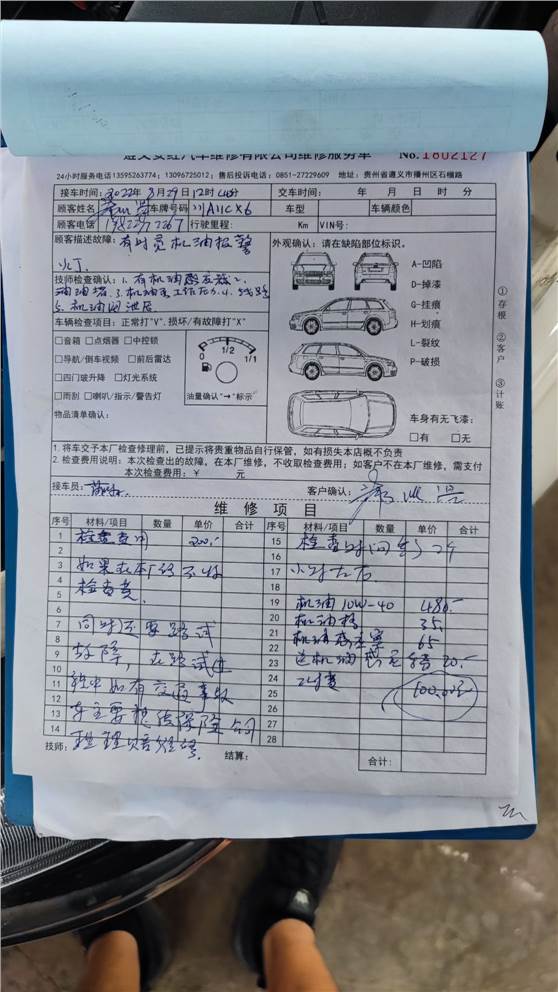 遵义安红汽车维修有限公司维修服务单 No.1802127
24小时服务电话13595263774；13096725012；售后投诉电话：0851-27229609 地址：贵州省遵义市播州区石榴路
接车时间：2022年8月29日12时40分 交车时间： 年 月 日 时 分
顾客姓名 车牌号码 川A11CX6 车型 车辆颜色
顾客电话 行驶里程： Km VIN号：
顾客描述故障：有时亮机油报警
火丁
外观确认：请在缺陷部位标识。
技师检查确认：1.有机油感应塞2.
油堵.3.机油泵工作 4.线路
5.机油 泄压
车辆检查项目：正常打"V"．损坏/有故障打"X"
□音箱 □点烟器 □中控锁
□导航/倒车视频 □前后雷达
□四门玻升降 □灯光系统
□雨刮 □喇叭/指示/警告灯
0 1/2 1/1
油量确认"→"标示
物品清单确认：
A-凹陷
D-掉漆
G-挂痕
H-划痕
L-裂纹
P-破损
车身有无飞漆：
□有 □无
①存根 ②客户 ③计账
1. 将车交予本厂检查修理前，已提示将贵重物品自行保管，如有损失本店概不负责
2. 检查费用说明：本次检查出的故障，在本厂维修，不收取检查费用；如客户不在本厂维修，需支付
本次检查费用：￥ 元
接车员： 客户确认：
维修项目
序号 材料/项目 数量 单价 合计 序号 材料/项目 数量 单价 合计
1 检查费用 200.-
2
3 如果在本厂修不收
4 检查费.
5
6
7 同时还要路试
8
9 故障，在路试
10
11 途中如有交通事故
12
13 车主要 保险公司
14 理赔维修.
15 检查时间 2个
16
17 小时左右
18
19 机油10W-40 486.-
20 机油格 35.
21 机油感应塞 65
22
23 送机油 20.-
24
25 600.00元
26
27
28
技师： 结算： 合计：